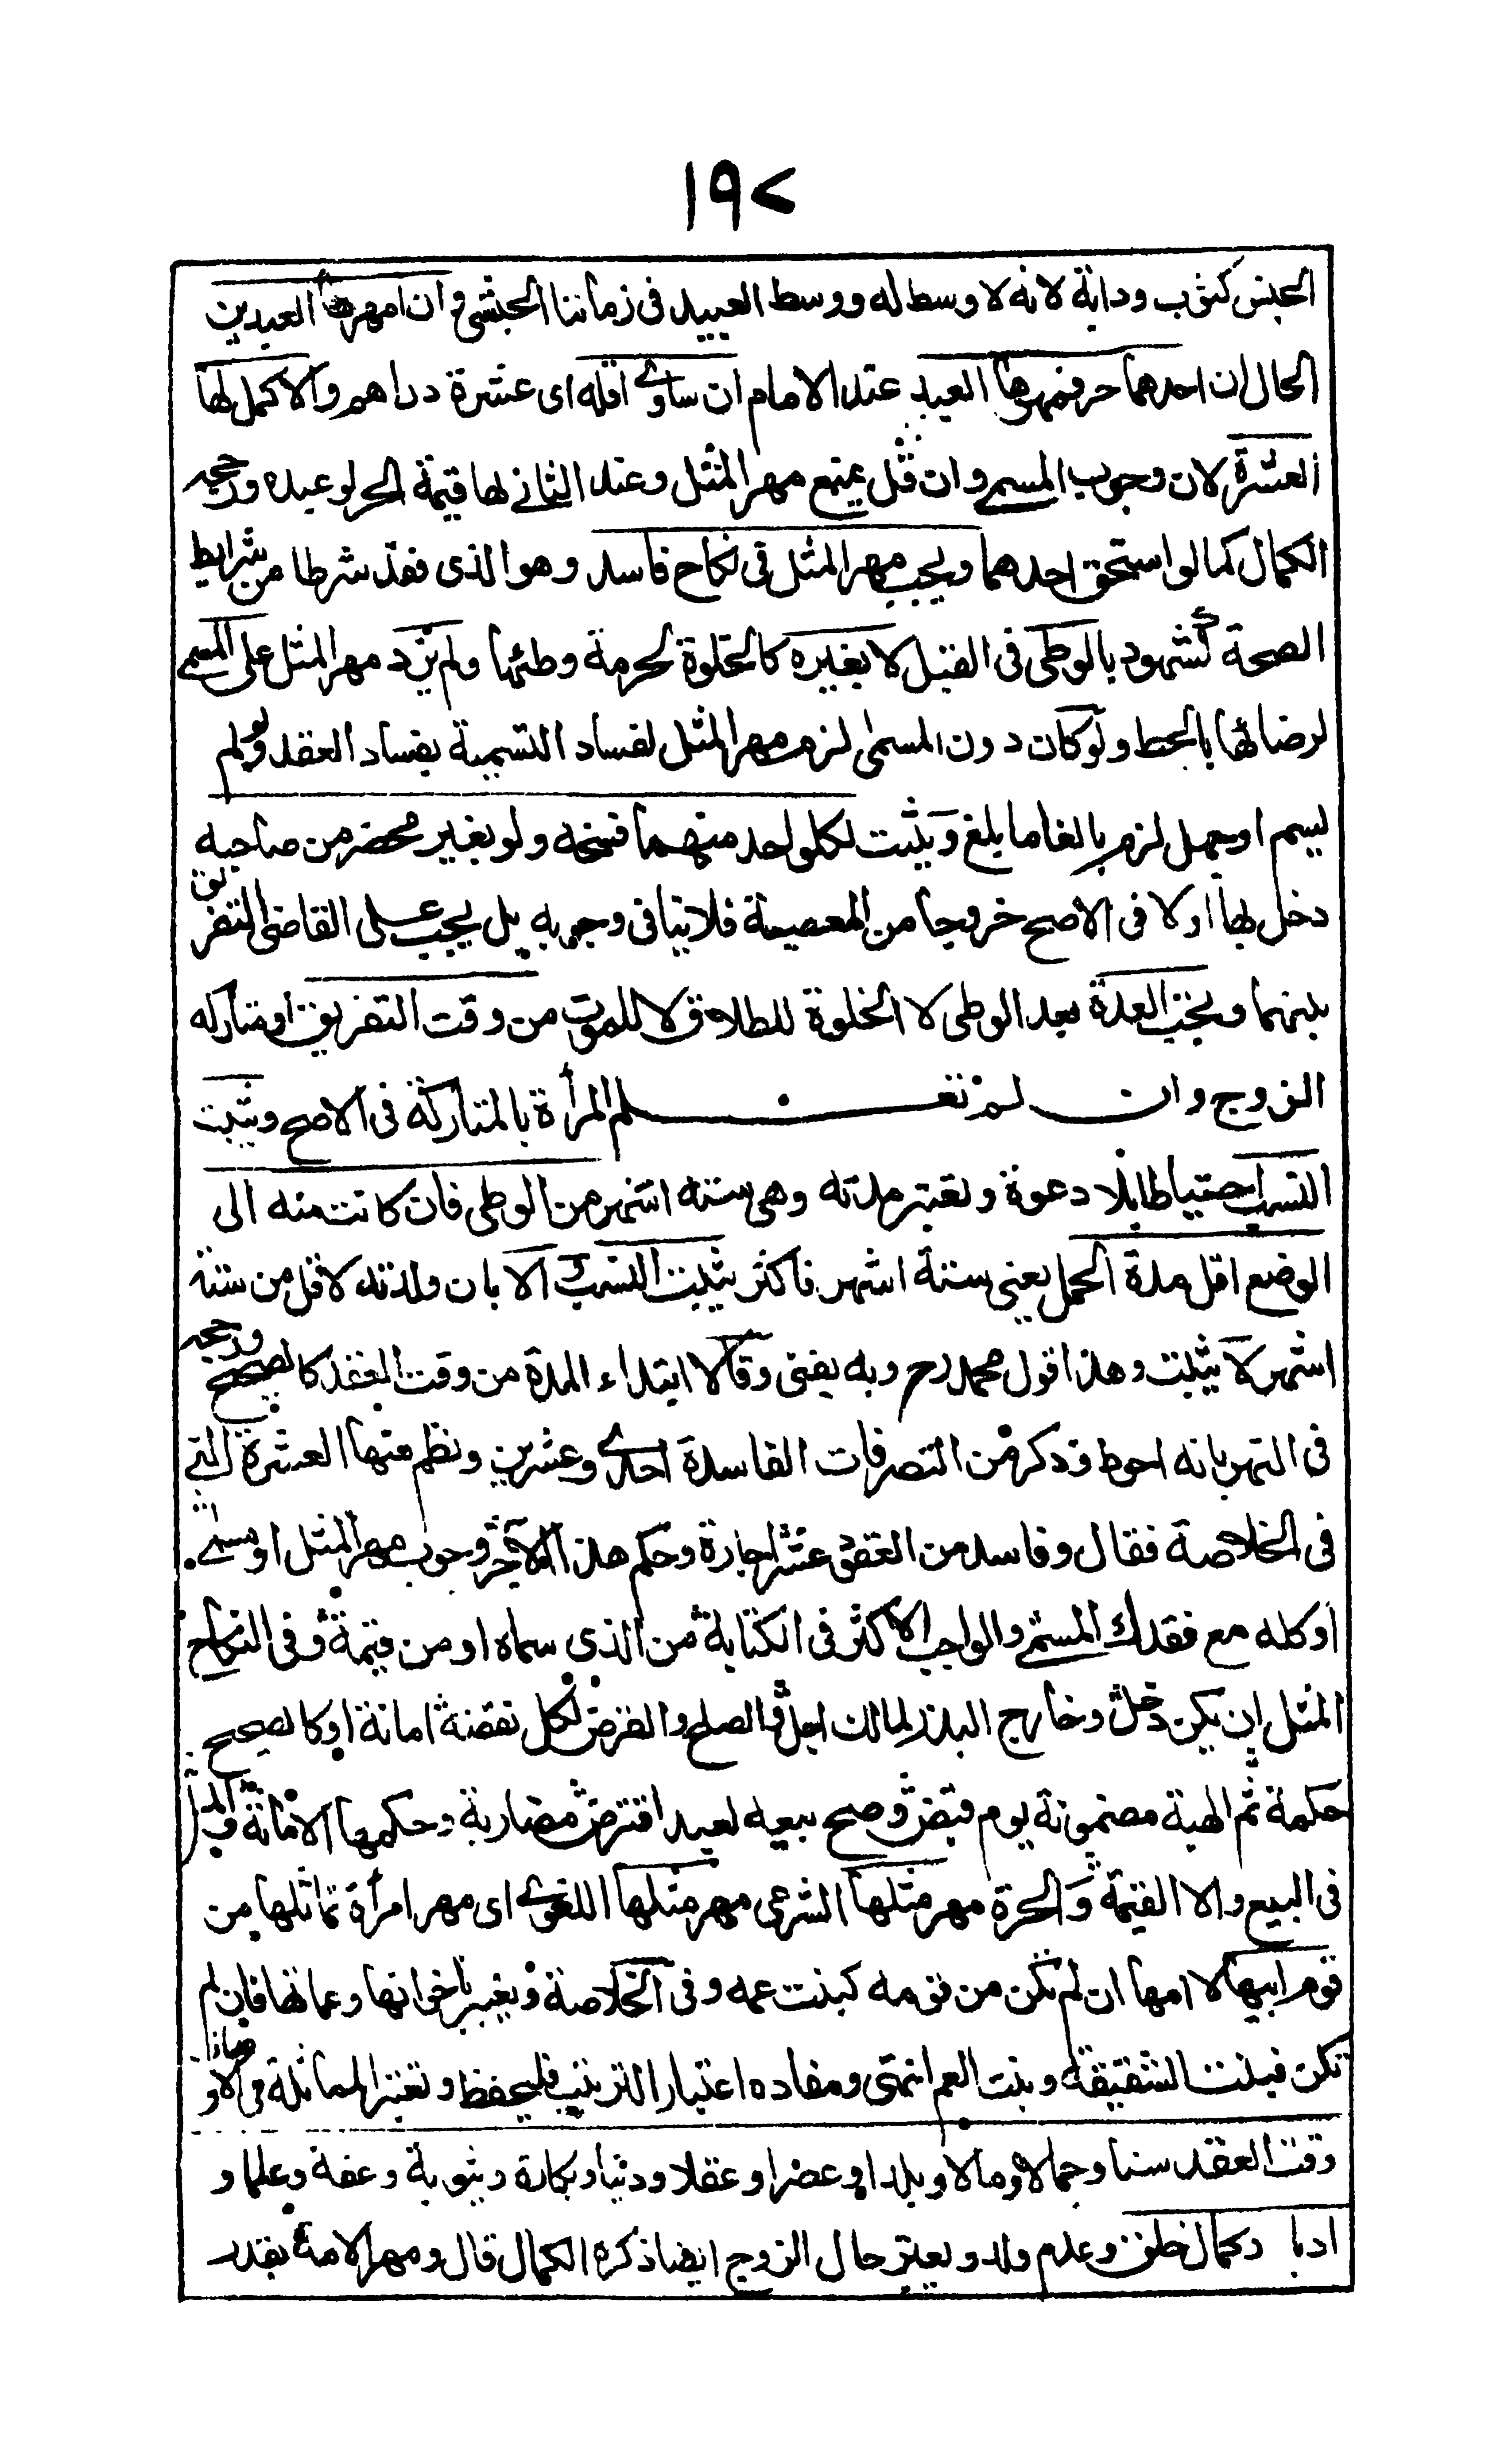 ١٩٢
الجنس كثوب ودابة لانه لا وسط له ووسط العبيد فى زماننا الحبشى وان امهرها العبدين
الحال ان احدهما حر فمهرها العبد عند الامام ان ساوى اقله اى عشرة دراهم والا كمل لها
العشرة لان وجوب المسمى وان قل يمنع مهر المثل وعند الثانى لها قيمة الحر لو عبدا ورجحه
الكمال كما لو استحق احدهما ويجب مهر المثل فى نكاح فاسد وهو الذى فقد شرطا من شرايط
الصحة كشهود بالوطى فى القبل لا بغيره كالخلوة لحرمة وطئها ولم يزد مهر المثل على المسمى
لرضائها بالحط ولو كان دون المسمى لزم مهر المثل لفساد التسمية بفساد العقد ولو لم
يسم او جهل لزم بالغا ما بلغ ويثبت لكل واحد منهما فسخه ولو بغير محضر من صاحبه
دخل بها اولا فى الاصح خروجا من المعصية فلا ينافى وجوبه بل يجب على القاضى التفريق
بينهما وتجب العدة بعد الوطى لا الخلوة للطلاق لا للموت من وقت التفريق او متاركه
الزوج وان لم تعلم المرأة بالمتاركة فى الاصح ويثبت
النسب احتياطا بلا دعوة وتعتبر مدته وهى ستة اشهر من الوطى فان كانت منه الى
الوضع اقل مدة الحمل يعنى ستة اشهر فاكثر يثبت النسب والا بان ولدته لاقل من ستة
اشهر لا يثبت وهذا قول محمد رح وبه يفتى وقالا ابتداء المدة من وقت العقد كالصحيح ورجحه
فى النهر بانه احوط وذكر من التصرفات الفاسدة احدى وعشرين ونظم منها العشرة التى
فى الخلاصة فقال وفاسد من العقود عشر اجارة وحكم هذا الاجر وجوب مهر المثل او مسمى
او كله مع فقدك المسمى والواجب الاكثر فى الكتابة من الذى سماه او من قيمة وفى النكاح
المثل ان يكن دخل وخارج البذر لمالك اجل والصلح والقرض لكل نقضه امانة او كالصحيح
حكمه ثم الهبة مضمونة يوم قبض وصح بيعه لعبد اقترض مضاربة وحكمها الامانة والمثل
فى البيع والا القيمة والحرة مهر مثلها الشرعى مهر مثلها اللغوى اى مهر امرأة تماثلها من
قوم ابيها لا امها ان لم تكن من قومه كبنت عمه وفى الخلاصة ويعتبر باخواتها وعماتها فان لم
تكن فبنت الشقيقة وبنت العم انتهى ومفاده اعتبار الترتيب فليحفظ وتعتبر المماثلة فى الاوصاف
وقت العقد سنا وجمالا ومالا وبلدا وعصرا وعقلا ودينا وبكارة وثيوبة وعفة وعلما و
ادبا وكمال خلق وعدم ولد ويعتبر حال الزوج ايضا ذكره الكمال قال ومهر الامة بقدر